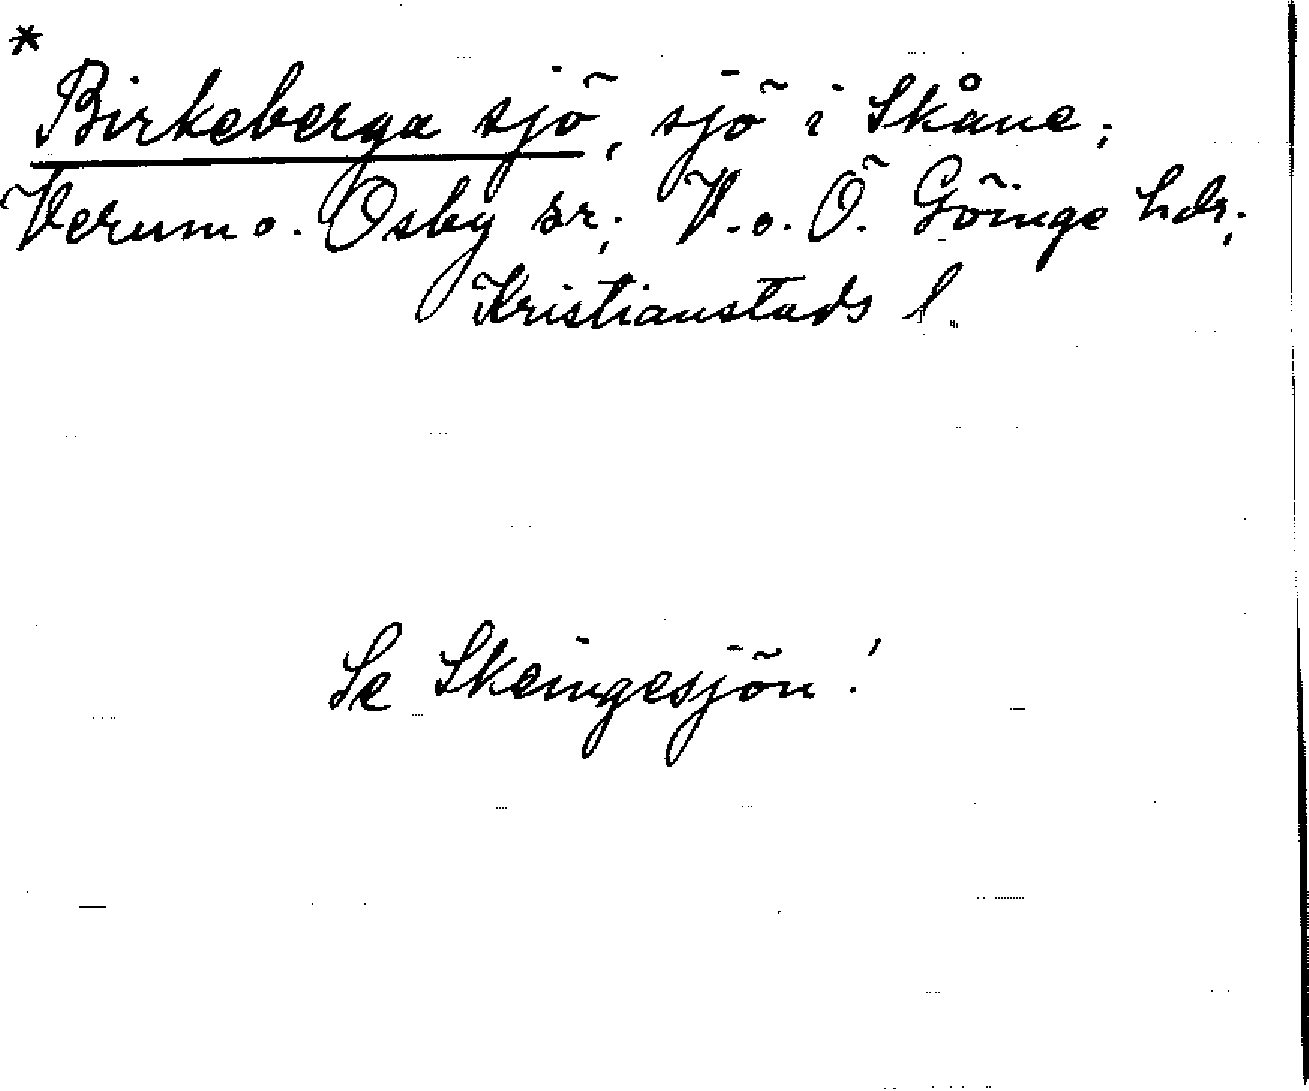 *
Birkeberga sjö, sjö i Skåne;
Verum o. Osby sr; V. o. Ö. Göinge hdr;
Kristianstads l.
Se Skeingesjön!